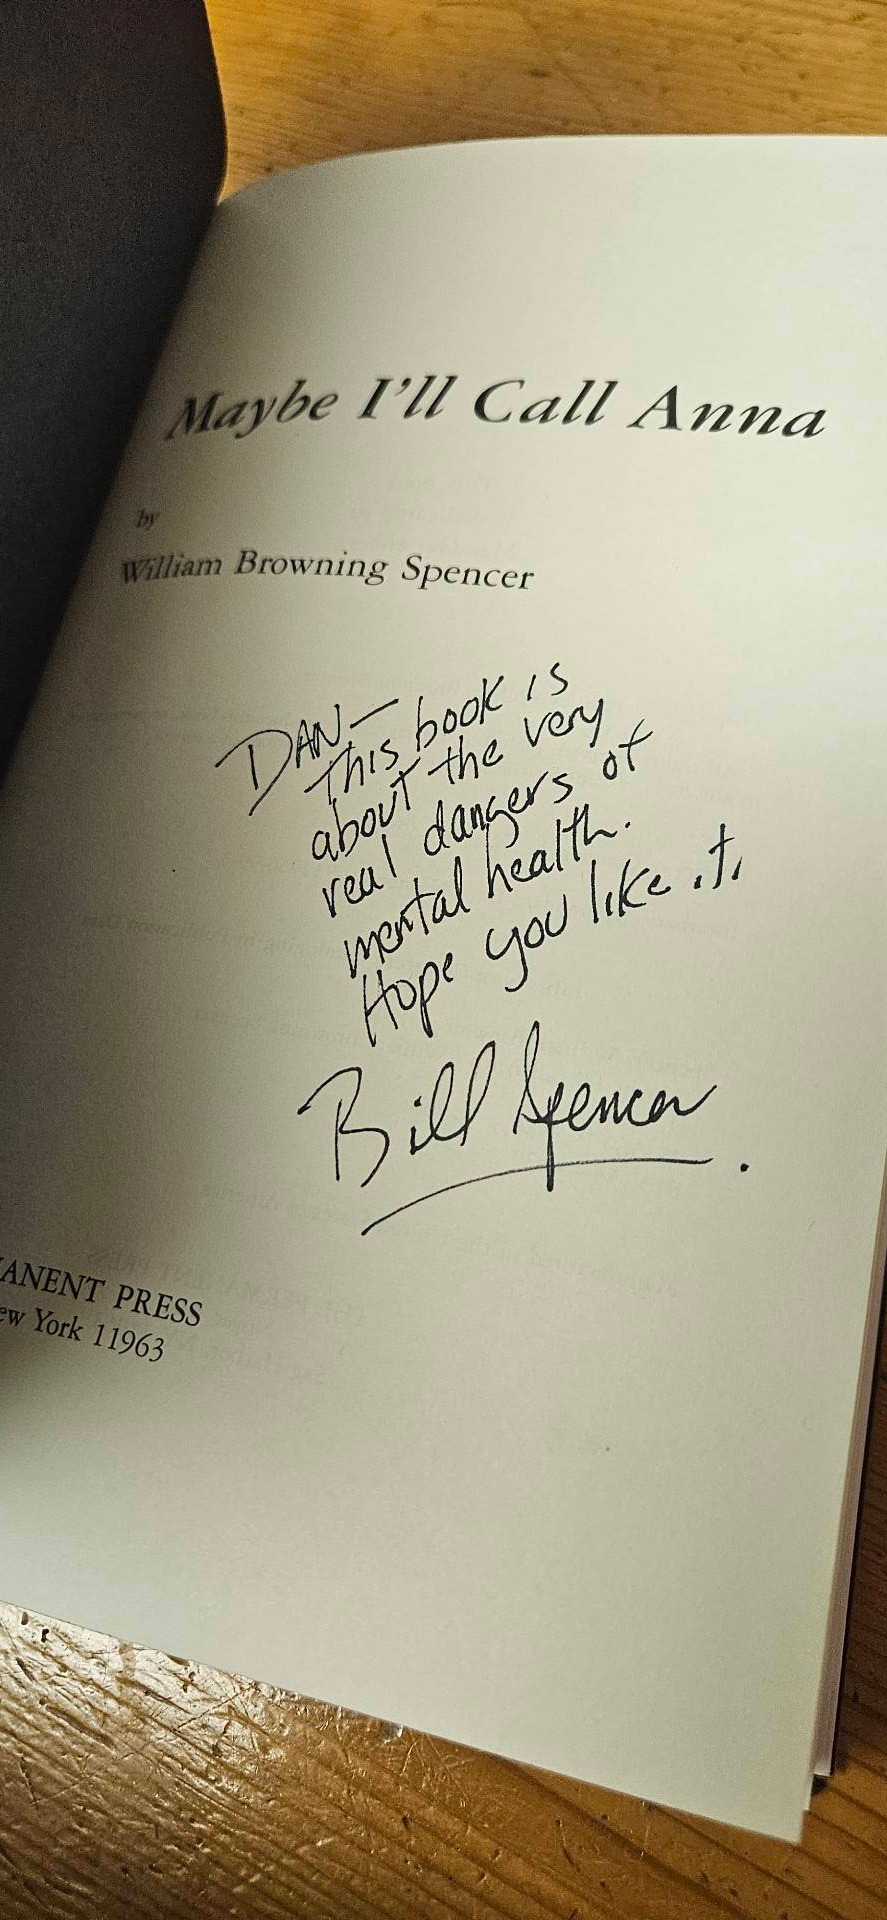 Maybe I'll Call Anna
by
William Browning Spencer
DAN—
This book is
about the very
real dangers of
mental health.
Hope you like it.
Bill Spencer
ANENT PRESS
ew York 11963